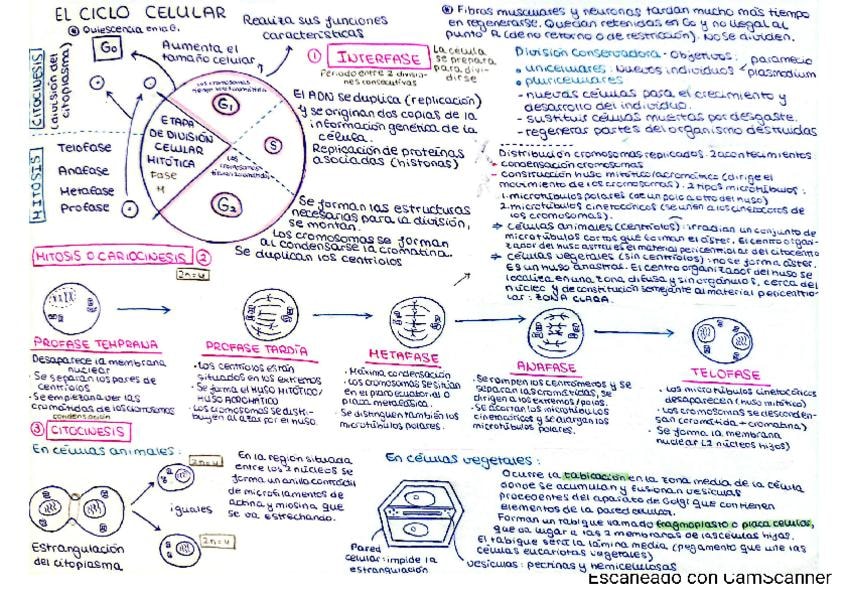 EL CICLO CELULAR
Realiza sus funciones
características
Quiescencia en G.
G₀
Aumenta el
tamaño celular
CITOCINESIS
(división del
citoplasma)
MITOSIS
Telofase
Anafase
Metafase
Profase
ETAPA
DE DIVISIÓN
CELULAR
MITÓTICA
FASE
M
G₁
S
G₂
① INTERFASE
Periodo entre 2 divisio-
nes consecutivas
La célula
se prepara
para divi-
dirse
El ADN se duplica (replicación)
y se originan dos copias de la
información genética de la
célula.
Replicación de proteínas
asociadas (histonas)
Se forman las estructuras
necesarias para la división,
se montan.
Los cromosomas se forman
al condensarse la cromatina.
Se duplican los centriolos
Fibras musculares y neuronas tardan mucho más tiempo
en regenerarse. Quedan retenidas en G₀ y no llegan al
punto R (de no retorno o de restricción). No se dividen.
División conservadora - Objetivos:
• unicelulares: nuevos individuos
paramecio
plasmodium
• pluricelulares
- nuevas células para el crecimiento y
desarrollo del individuo.
- sustituir células muertas por desgaste.
- regenerar partes del organismo destruidas
Distribución cromosomas replicados. 2 acontecimientos
- condensación cromosomas
- construcción huso mitótico/acromático (dirige el
movimiento de los cromosomas). 2 tipos microtúbulos:
1. microtúbulos polares (de un polo a otro del huso)
2. microtúbulos cinetocóricos (se unen a los cinetocoros de
los cromosomas).
→ células animales (centriolos): irradian un conjunto de
microtúbulos cortos que forman el áster. El centro organi-
zador del huso astral es el material pericentriolar del citocentro
→ células vegetales (sin centriolos): no se forma áster.
Es un huso anastral. El centro organizador del huso se
localiza en una zona difusa y sin orgánulos, cerca del
núcleo y de constitución semejante al material pericentrio-
lar: ZONA CLARA.
MITOSIS O CARIOCINESIS ②
2n=4
PROFASE TEMPRANA
Desaparece la membrana
nuclear
· Se separan los pares de
centriolos
· Se empiezan a ver las
cromátidas de los cromosomas
condensación
PROFASE TARDÍA
· Los centriolos están
situados en los extremos
· Se forma el HUSO MITÓTICO/
HUSO ACROMÁTICO
· Los cromosomas se distri-
buyen al azar por el huso.
METAFASE
· Máxima condensación
· Los cromosomas se sitúan
en el plano ecuatorial o
placa metafásica.
· Se distinguen también los
microtúbulos polares.
ANAFASE
· Se rompen los centrómeros y se
separan las cromátidas, se
dirigen a los extremos/polos.
· Se acortan los microtúbulos
cinetocóricos y se alargan los
microtúbulos polares.
TELOFASE
· Los microtúbulos cinetocóricos
desaparecen (huso mitótico)
· Los cromosomas se desconden-
san (cromátida → cromatina)
· Se forma la membrana
nuclear (2 núcleos hijos)
③ CITOCINESIS
En células animales:
2n=4
iguales
2n=4
Estrangulación
del citoplasma
En la región situada
entre los 2 núcleos se
forma un anillo contráctil
de microfilamentos de
actina y miosina que
se va estrechando.
En células vegetales:
Pared
celular: impide la
estrangulación
Ocurre la tabicación en la zona media de la célula
donde se acumulan y fusionan vesículas
procedentes del aparato de Golgi que contienen
elementos de la pared celular.
Forman un tabique llamado fragmoplasto o placa celular,
que da lugar a las 2 membranas de las células hijas.
El tabique será la lámina media (pegamento que une las
células eucariotas vegetales)
vesículas: pectinas y hemicelulosas
Escaneado con CamScanner